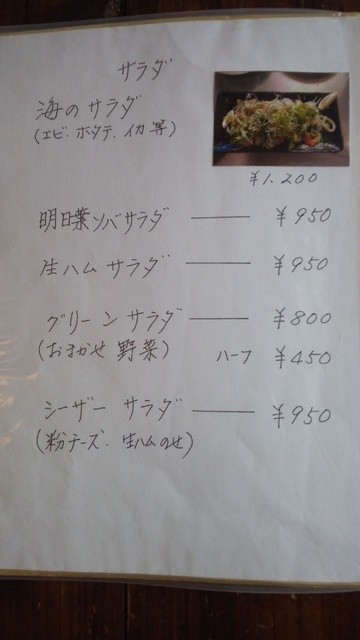 サラダ
海のサラダ
(エビ、ホタテ、イカ等)
¥1.200
明日葉ソバサラダ ―― ¥950
生ハムサラダ ―― ¥950
グリーンサラダ ―― ¥800
(おまかせ野菜) ハーフ ¥450
シーザーサラダ ―― ¥950
(粉チーズ、生ハムのせ)